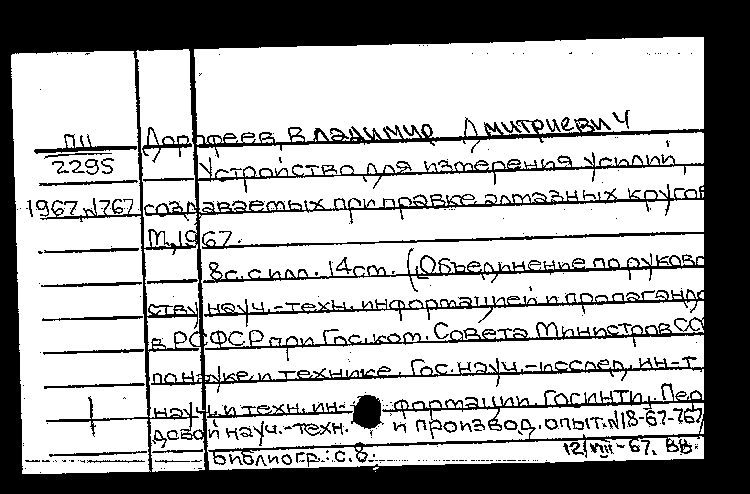 ПII Дорофеев, Владимир Дмитриевич
2295 Устройство для измерения усилий,
1967,N767 создаваемых при правке алмазных кругов
М,1967.
8с.с илл. 14ст. (Объединение по руково
ству науч.-техн. информацией и пропаганд
в РСФСР при Гос.ком. Совета Министров СС
по науке и технике. Гос. науч.-исслед. ин-т
науч. и техн. ин- формации. ГОСИНТИ. Пер
довой науч.-техн. и производ. опыт. N18-67-767
Библиогр.: с.8. 12/VIII-67. ВВ.